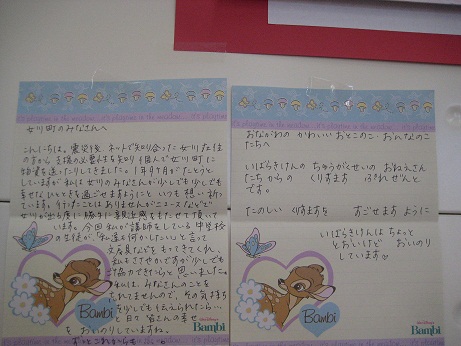 女川町のみなさんへ
こんにちは。震災後、ネットで知り合った女川在住
の方から支援の必要性を知り個人で女川町に
物資を送ったりしてきました。1年9ヶ月がたとうと
していますが私は女川のみなさんが少しでも少しでも
幸せなひとときを過ごせますようにと いつも想い祈って
います。行ったことはありませんがニュースなどで
女川が出る度に勝手に親近感をもたせて頂いて
います。今回私が講師をしている中学校
の生徒が、私達も何かしたい、と言って
文房具などをもってきてくれ、
私もささやかですが少しでも
ご協力できたらと思いました。
私は、みなさんのことを
忘れてませんので、その気持ち
を少しでも伝えられたら…
と日々皆さんの幸せ
を お祈りしていますね。
ずっとこれからも
Bambi
Walt Disney's
Bambi
おながわの かわいい おとこのこ・おんなのこ
たちへ
いばらきけんの ちゅうがくせいの おねえさん
たちからの くりすます ぷれぜんと
です。
たのしい くりすますを すごせます ように
いばらきけんは ちょっと
とおいけど おいのり
しています
Bambi
Walt Disney's
Bambi